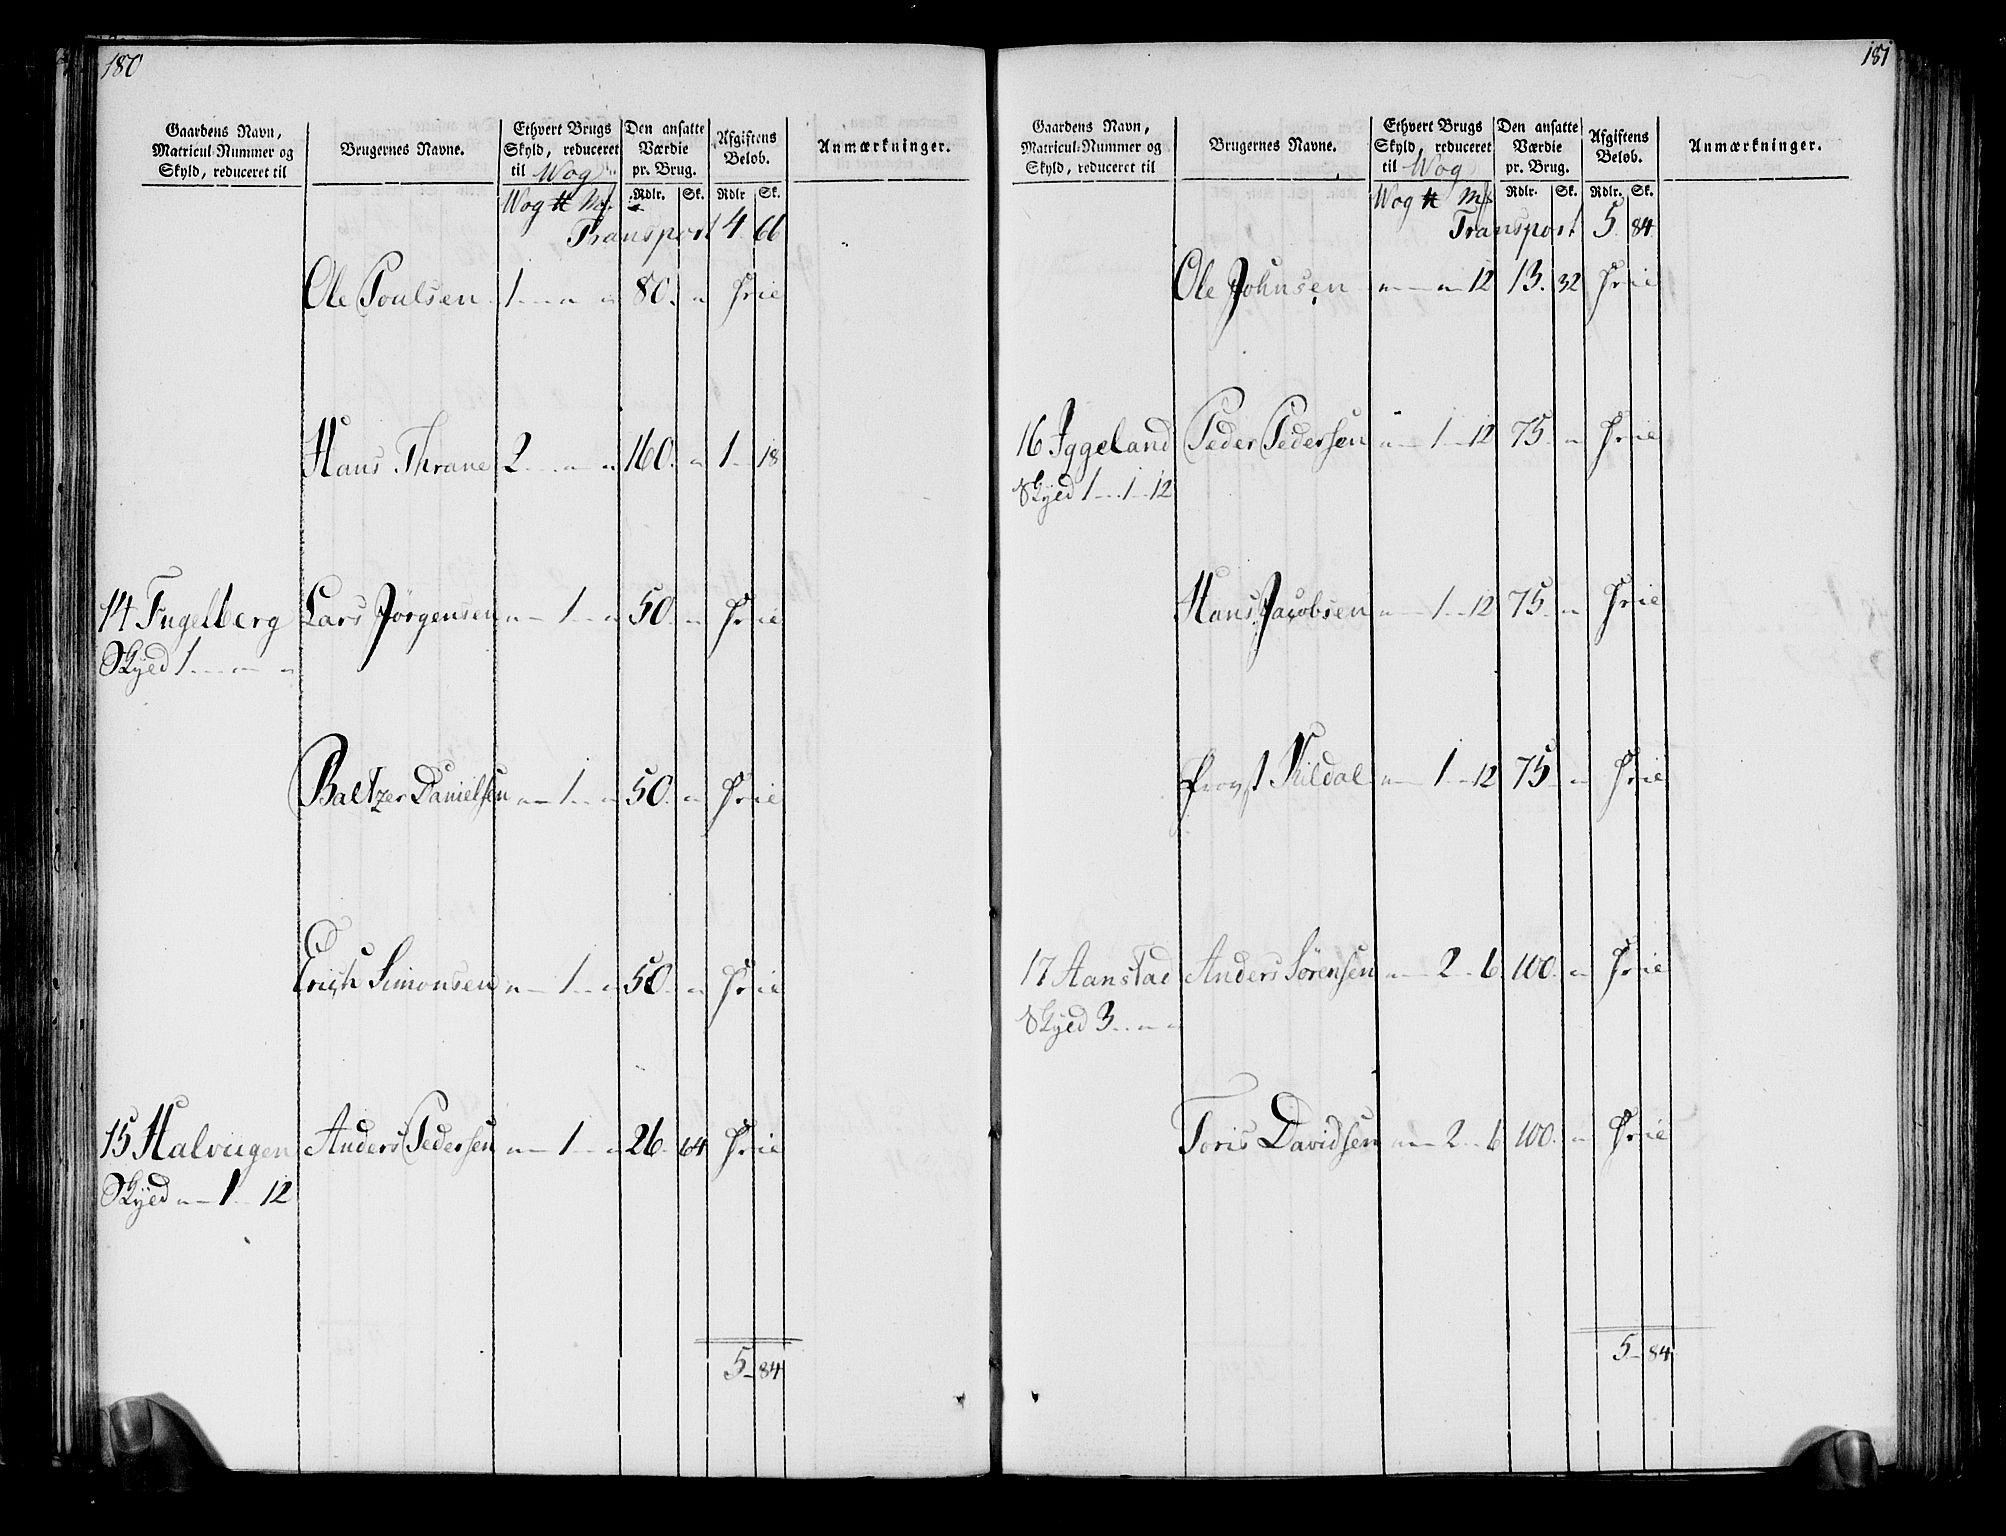 180
Gaardens Navn, Matricul-Nummer og Skyld, reduceret til | Brugernes Navne. | Ethvert Brugs Skyld, reduceret til Wog | Den ansatte Værdie pr. Brug. | Afgiftens Beløb. | Anmærkninger.
Wog ℔ Mk. | Rdlr. | Sk. | Rdlr. | Sk.
Transport 4 66
Ole Poulsen 1 " " 80. " Frie
Hans Thrane 2 " " 160. " 1 18
14 Fugelberg Lars Jørgensen " 1 " 50. " Frie
Skyld 1 " "
Baltzer Danielsen " 1 " 50. " Frie
Erich Simonsen " 1 " 50. " Frie
15 Halvigen Anders Pedersen " 1 " 26. 64 Frie
Skyld " 1 12
5 84
181
Gaardens Navn, Matricul-Nummer og Skyld, reduceret til | Brugernes Navne. | Ethvert Brugs Skyld, reduceret til Wog | Den ansatte Værdie pr. Brug. | Afgiftens Beløb. | Anmærkninger.
Wog ℔ Mk | Rdlr. | Sk. | Rdlr. | Sk.
Transport 5 84
Ole Johnsen " " 12 13. 32 Frie
16 Iggeland Peder Pedersen " 1 12 75 " Frie
Skyld 1 1 12
Hans Jacobsen " 1 12 75 " Frie
Provst Kildal " 1 12 75 " Frie
17 Aanstad Anders Sørensen " 2 6 100. " Frie
Skyld 3 " "
Joris Davidsen " 2 6 100. " Frie
5 84